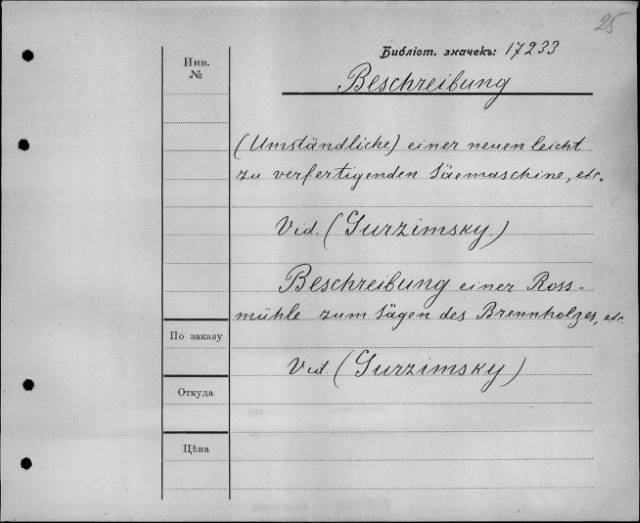 25
Библіот. значекъ: 17233
Инв.
№
Beschreibung
(Umständliche) einer neuen leicht
zu verfertigenden Säemaschine, etc.
Vid. (Gurzimsky.)
Beschreibung einer Ross-
mühle zum Sägen des Brennholzes, etc.
По заказу
Vid. (Gurzimsky)
Откуда
Цѣна